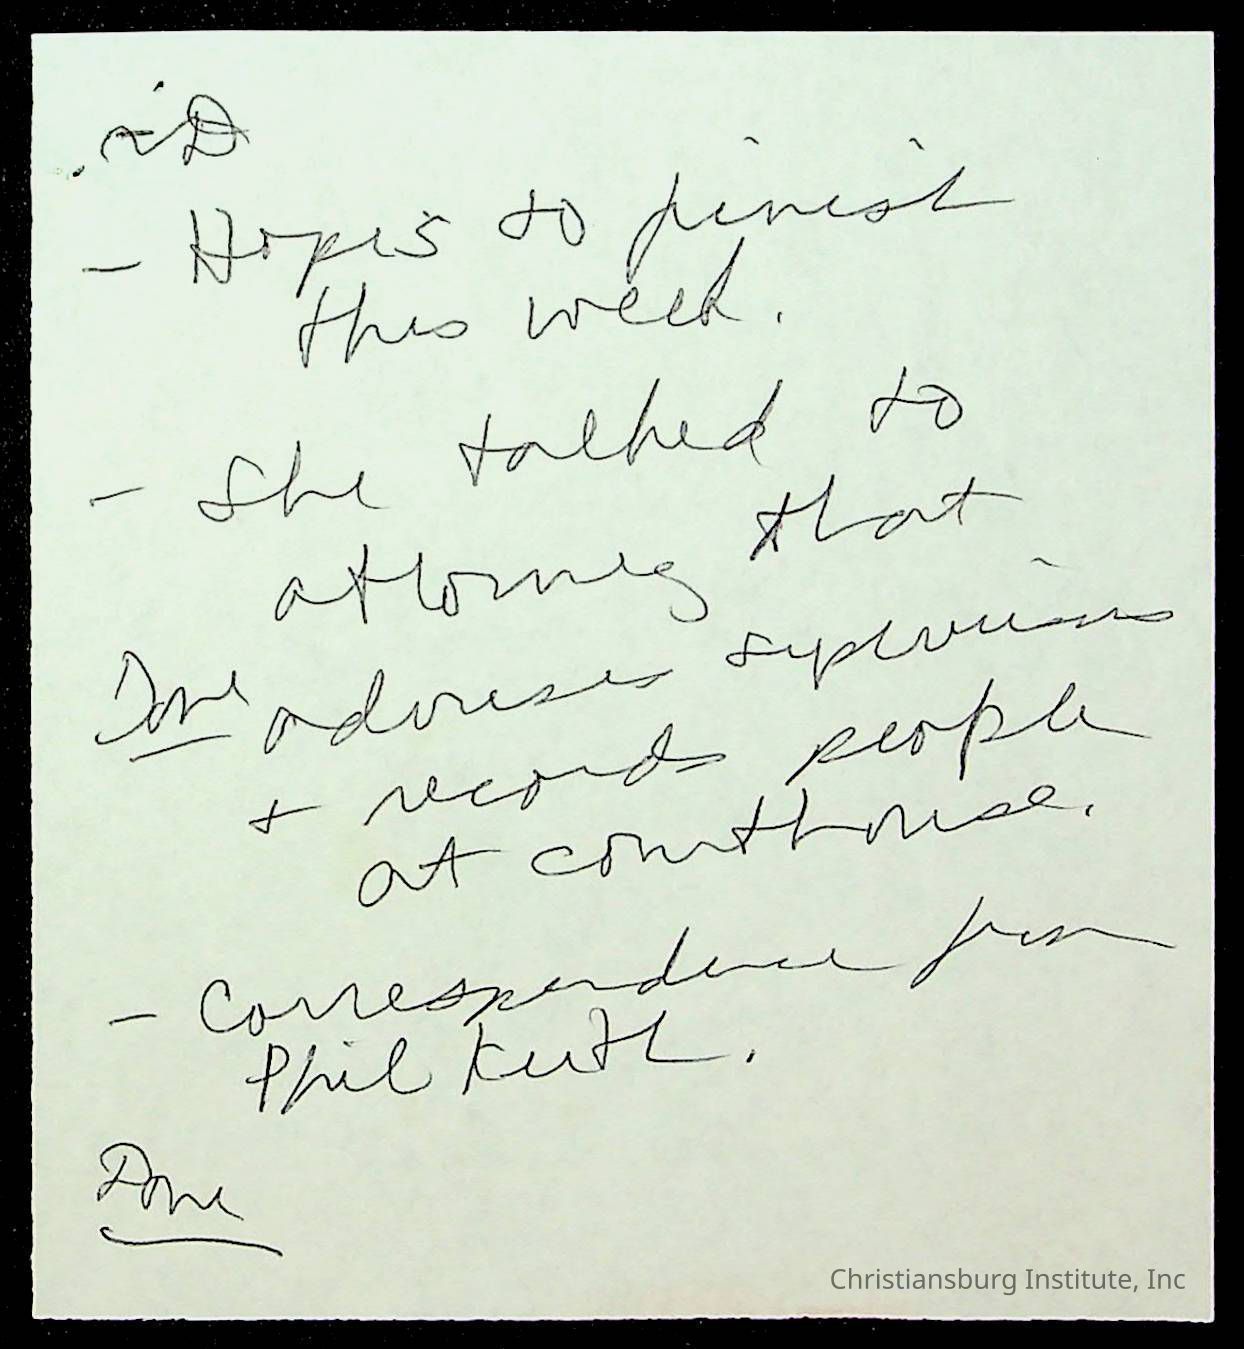 - Hopes to finish
this week.
- She talked to
attorney that
Done advises supervisors
+ records people
at courthouse.
- Correspondence from
Phil Keith.
Done
Christiansburg Institute, Inc